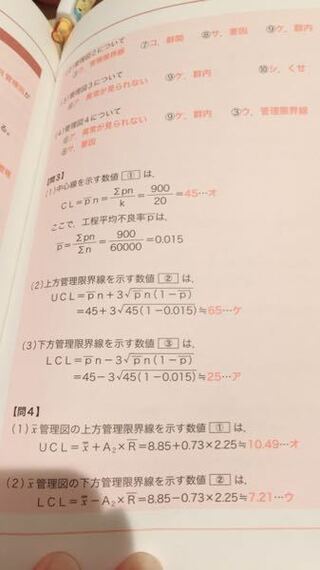 (2)管理図2について
⑦コ、群間 ⑧サ、要因 ⑨ケ、群内
(3)管理図3について
異常が見られない ⑨ケ、群内 ⑩シ、くせ
(4)管理図4について
異常が見られない ⑨ケ、群内 ③ウ、管理限界線
⑧サ、要因
【問3】
(1)中心線を示す数値 ① は、
CL=p̄n=Σpn/k=900/20=45…オ
ここで、工程平均不良率p̄は、
p̄=Σpn/Σn=900/60000=0.015
(2)上方管理限界線を示す数値 ② は、
UCL=p̄n+3√p̄n(1-p̄)
=45+3√45(1-0.015)≒65…ケ
(3)下方管理限界線を示す数値 ③ は、
LCL=p̄n-3√p̄n(1-p̄)
=45-3√45(1-0.015)≒25…ア
【問4】
(1)x̄管理図の上方管理限界線を示す数値 ① は、
UCL=x̿+A₂×R̄=8.85+0.73×2.25≒10.49…オ
(2)x̄管理図の下方管理限界線を示す数値 ② は、
LCL=x̿-A₂×R̄=8.85-0.73×2.25≒7.21…ウ